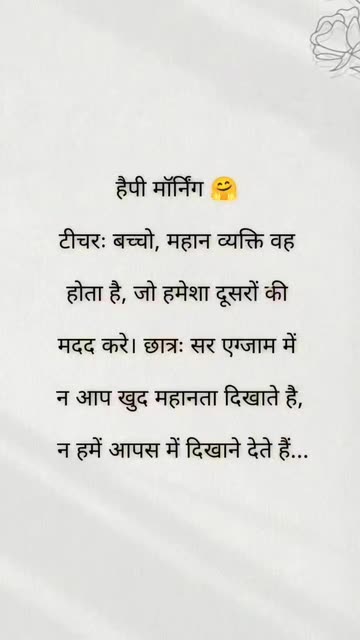 हैपी मॉर्निंग 🤗
टीचरः बच्चो, महान व्यक्ति वह
होता है, जो हमेशा दूसरों की
मदद करे। छात्रः सर एग्जाम में
न आप खुद महानता दिखाते है,
न हमें आपस में दिखाने देते हैं...